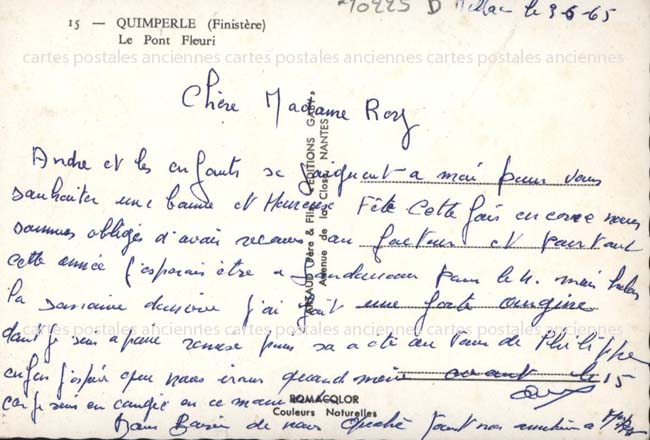 15 — QUIMPERLE (Finistère)
Le Pont Fleuri
le 3-6-65
cartes postales anciennes cartes postales anciennes cartes postales anciennes
Chère Madame Rory
Andre et les enfants se joignent a moi pour vous
souhaiter une bonne et Heureuse Fête Cette fois encore nous
sommes obligés d'avoir recours au facteur et pourtant
cette année j'esperais être a pour le 4. mais helas
la semaine derniere j'ai fait une forte angine
dont je suis a peine remise puis sa a été au tour de Philippe
cartes postales anciennes cartes postales anciennes cartes postales anciennes
enfin j'espère que nous irons quand meme avant le 15
car je suis en congée en ce moment
Bons Baisers de nous quatre
ARTAUD Père & Fils, EDITIONS GABY
Avenue de la Close, NANTES
ROMACOLOR
Couleurs Naturelles